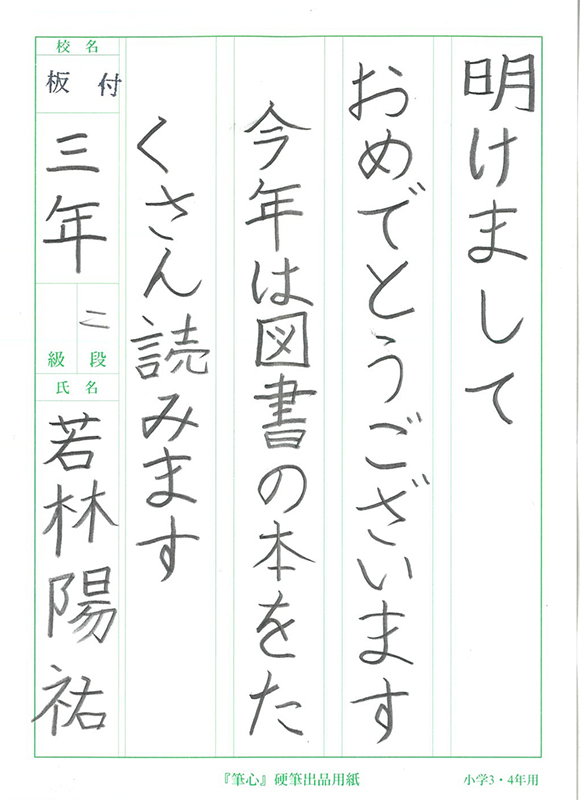 明けまして
おめでとうございます
今年は図書の本をた
くさん読みます
校名
板付
三年
二
級段
氏名
若林陽祐
『筆心』硬筆出品用紙
小学3・4年用